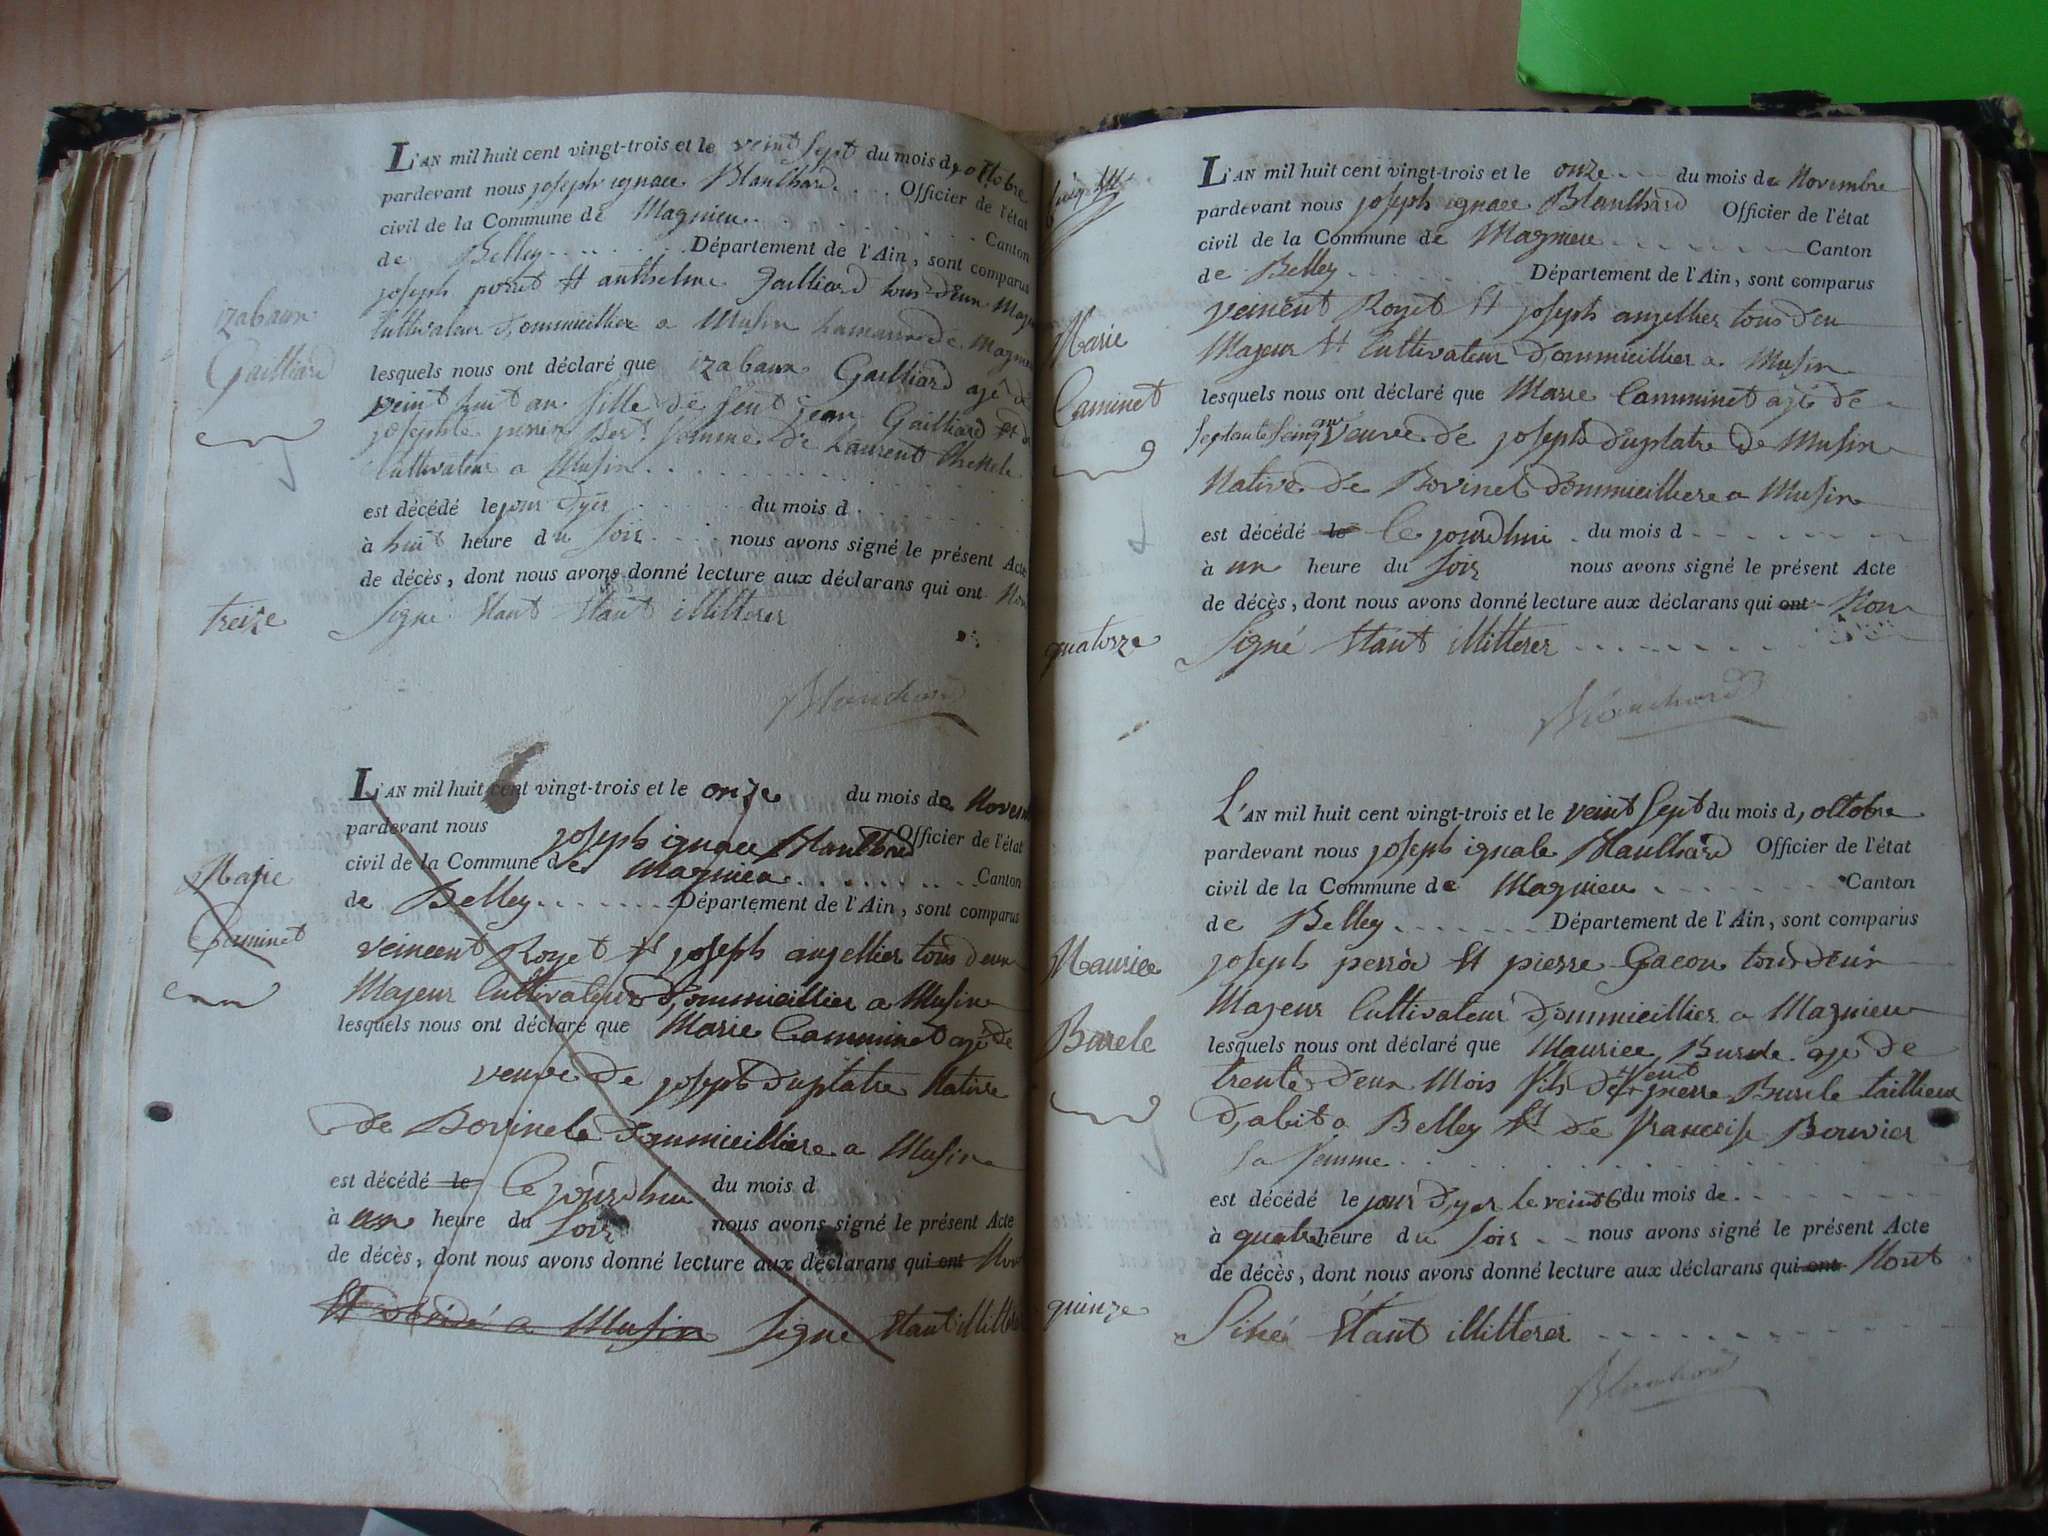 L'AN mil huit cent vingt-trois et le veint sept du mois d, octobre
pardevant nous joseph ignace Blanchard Officier de l'état
civil de la Commune de Magnieu Canton
de Belley Département de l'Ain, sont comparus
joseph et anthelme Gailliard tous deux
Cultivateur d'ommicillier a Musin de
izabaux
Gailliard
lesquels nous ont déclaré que izabaux Gailliard agé de
veint huit an fille de feut jean Gailliard et de
josephte femme de Laurent
Cultivateur a Musin
est décédé le jour d'yer du mois d
à huit heure du soir nous avons signé le présent Acte
de décès, dont nous avons donné lecture aux déclarans qui ont Non
treize
Signé Etant Etant illitterer
Blanchard
L'AN mil huit cent vingt-trois et le onze du mois de Novem
pardevant nous joseph ignace Blanchard Officier de l'état
civil de la Commune de Magnieu Canton
de Belley Département de l'Ain, sont comparus
Marie
Caminet
veincent Royet Et joseph angellier tous deux
Majeur Cultivateur d'ommicillier a Musin
lesquels nous ont déclaré que Marie Camminet agé de
veuve de joseph duplatre Native
de Bovinel d'ommicilliere a Musin
est décédé le Ce jourdhui du mois d
à un heure du soir nous avons signé le présent Acte
de décès, dont nous avons donné lecture aux déclarans qui ont Non
Et a Musin Signe Etant illitterer
L'AN mil huit cent vingt-trois et le onze du mois de Novembre
pardevant nous joseph ignace Blanchard Officier de l'état
civil de la Commune de Magnieu Canton
de Belley Département de l'Ain, sont comparus
Marie
Caminet
veincent Royet Et joseph angellier tous deu
Majeur Et Cultivateur d'ommicillier a Musin
lesquels nous ont déclaré que Marie Camminet agé de
veuve de joseph duplatre de Musin
Native de Bovinel d'ommicilliere a Musin
est décédé le Ce jourdhui du mois d
à un heure du soir nous avons signé le présent Acte
de décès, dont nous avons donné lecture aux déclarans qui ont Non
quatorze
Signé Etant illitterer
Blanchard
L'AN mil huit cent vingt-trois et le veint sept du mois d, octobre
pardevant nous joseph ignace Blanchard Officier de l'état
civil de la Commune de Magnieu Canton
de Belley Département de l'Ain, sont comparus
Maurice
Burele
joseph Et pierre Gacon tous deux
Majeur Cultivateur d'ommicillier a Magnieu
lesquels nous ont déclaré que Maurice Burele agé de
trente deux Mois fils de feut pierre Burele taillieur
d, abit a Belley Et de francoise Bouvier
sa femme
est décédé le jour d'yer le veint 6 du mois de
à quatre heure du soir nous avons signé le présent Acte
de décès, dont nous avons donné lecture aux déclarans qui ont Nont
quinze
Siné Etant illitterer
Blanchard